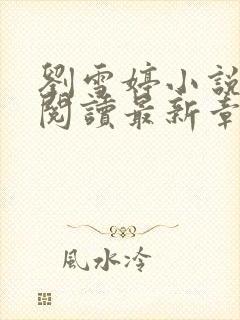 劉雪婷小說
閱讀最新章
風水冷